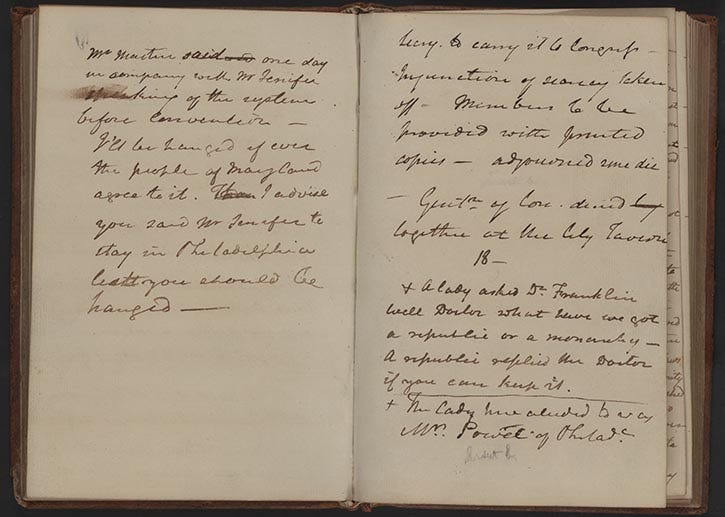 Mr Martin said one day
in company with Mr Jenifer
speaking of the system
before Convention –
I'll be hanged if ever
the people of Maryland
agree to it. I advise
you said Mr Jenifer to
stay in Philadelphia
lest you should be
hanged —
Secy. to carry it to Congress –
Injunction of secrecy taken
off – Members to be
provided with printed
copies – adjourned sine die
– Gentn. of Con. dined
together at the City Tavern
18 –
+ A lady asked Dr. Franklin
well Doctor what have we got
a republic or a monarchy –
A republic replied the Doctor
if you can keep it.
+ The lady here aluded to was
Mrs. Powel of Philada.